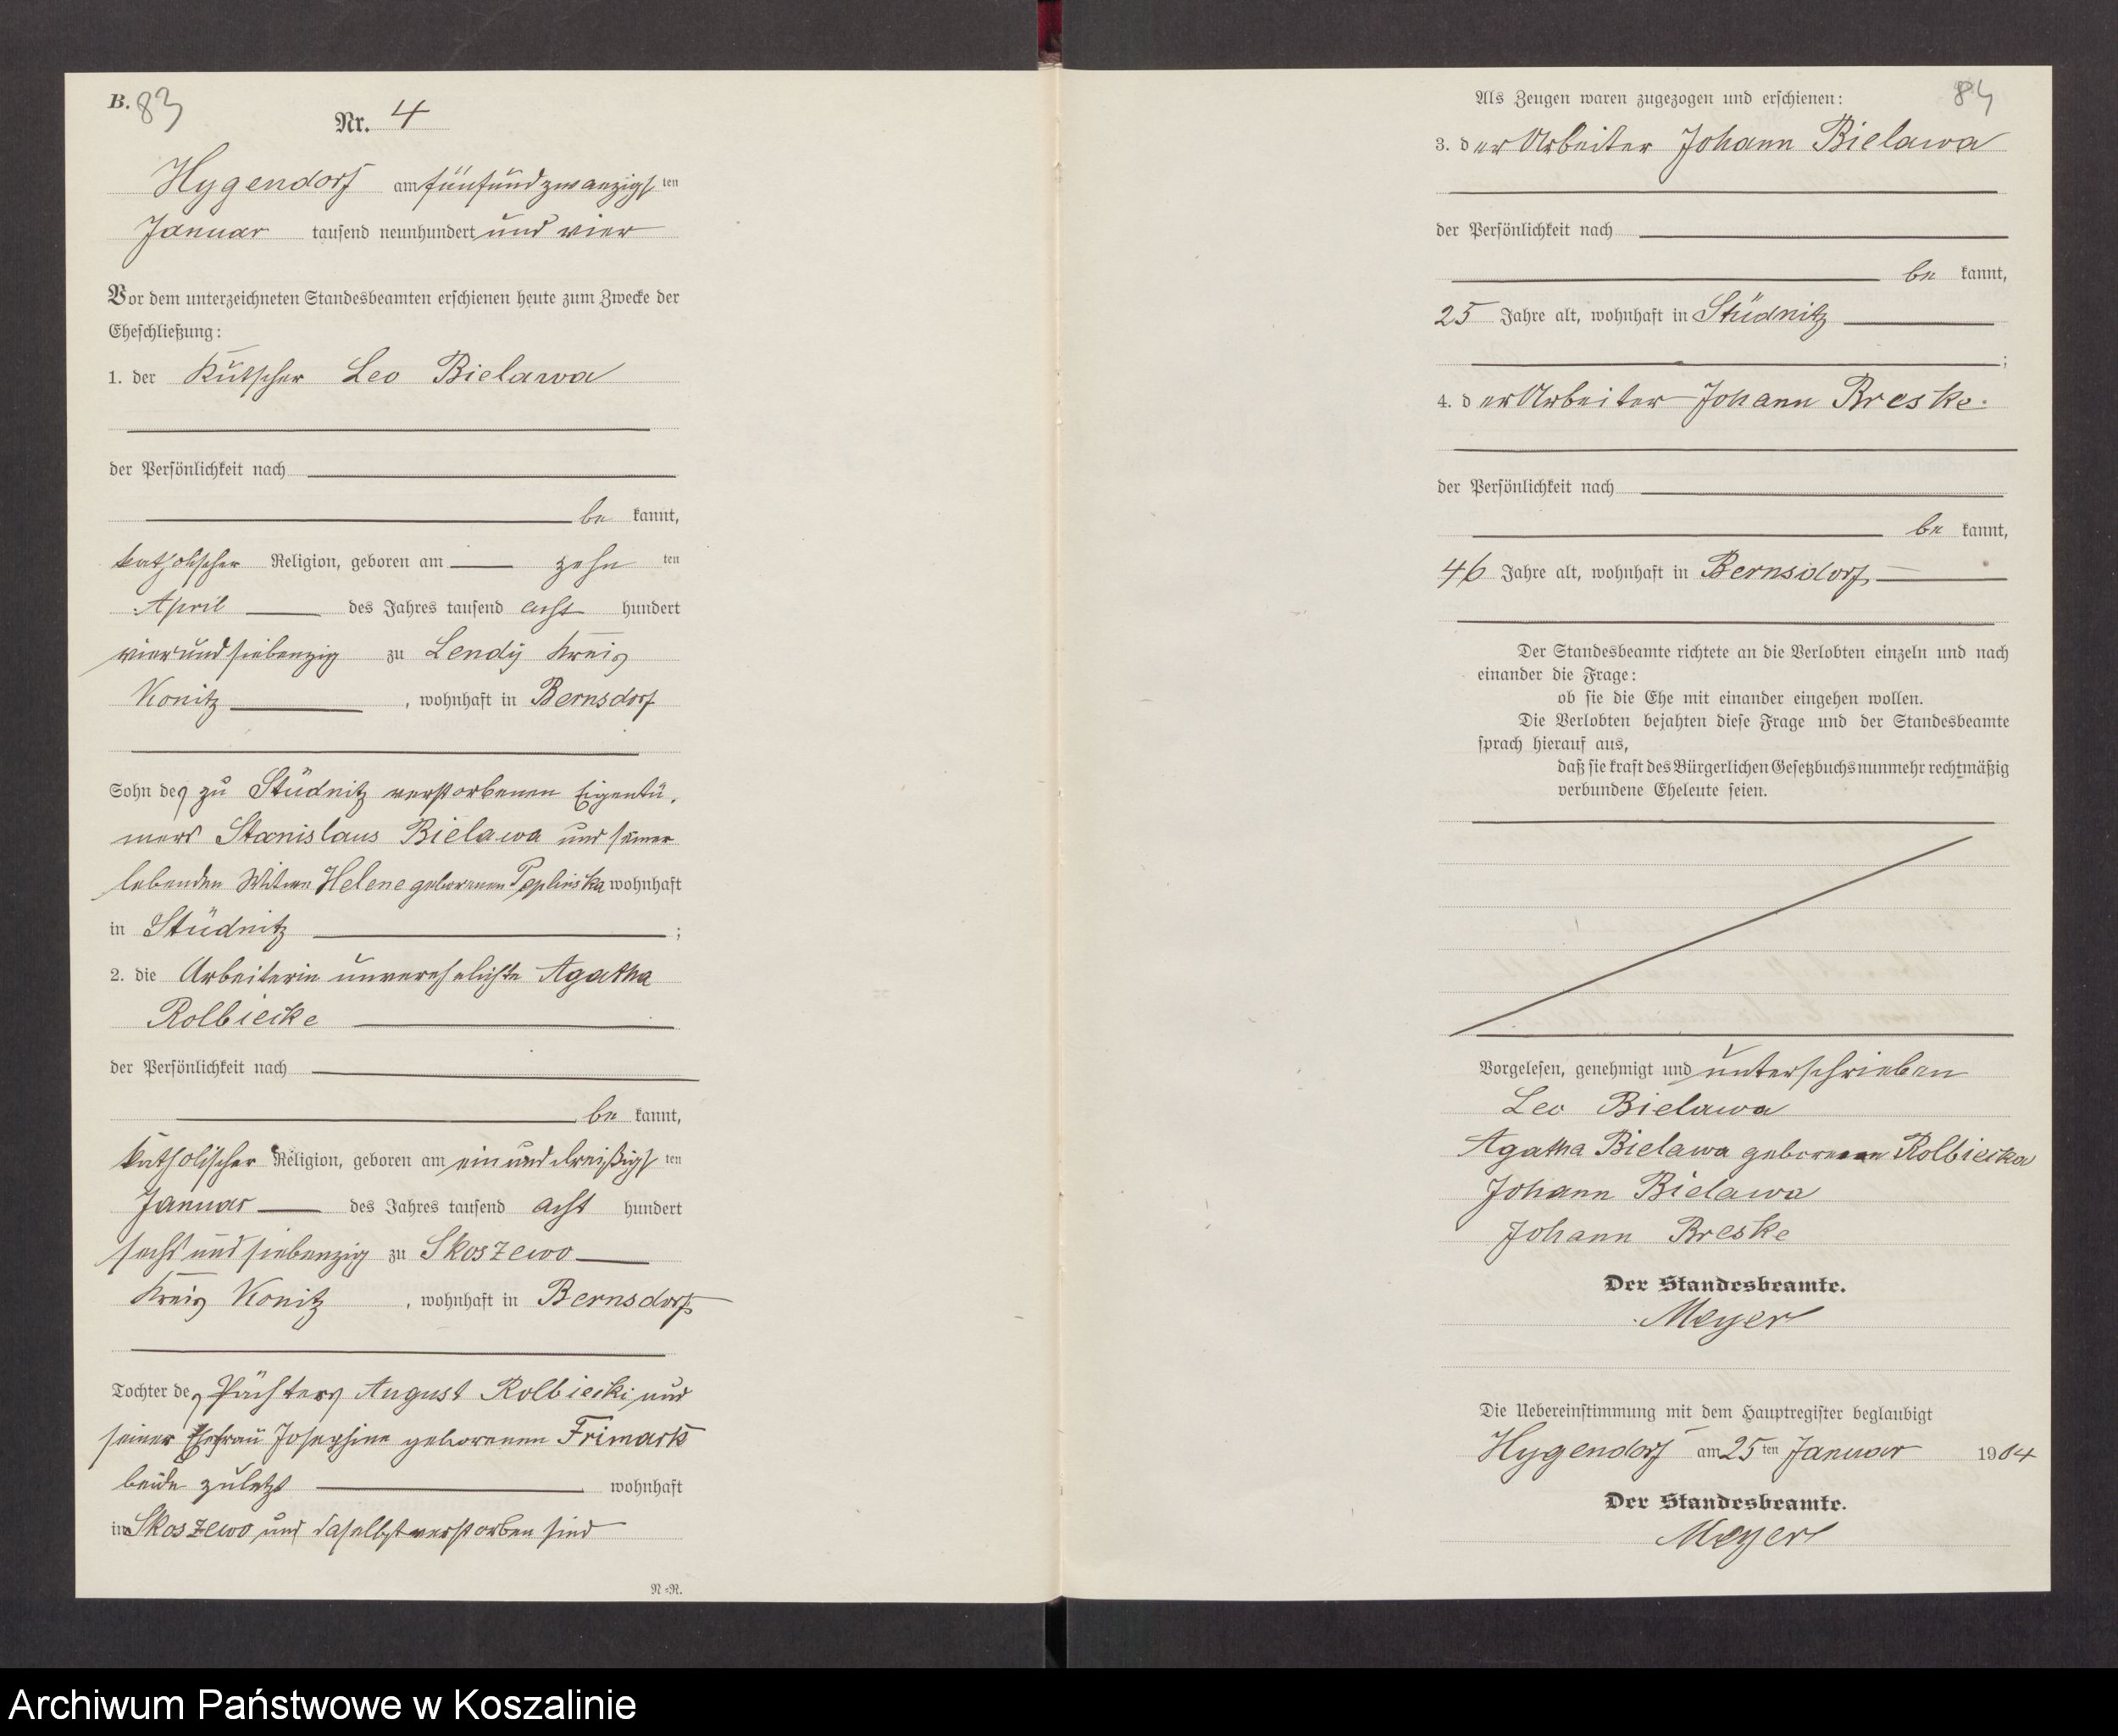 B. 83
Nr. 4
Hygendorf am fünfundzwanzigs ten
Januar tausend neunhundert und vier
Vor dem unterzeichneten Standesbeamten erschienen heute zum Zwecke der
Eheschließung:
1. der Kutscher Leo Bielawa
der Persönlichkeit nach
be kannt,
katholischer Religion, geboren am zehn ten
April des Jahres tausend acht hundert
vierundsiebenzig zu Lendy Kreis
Konitz, wohnhaft in Bernsdorf
Sohn des zu Studnitz verstorbenen Eigentü-
mers Stanislaus Bielawa und seiner
lebenden Witwe Helene geborenen Peplinska wohnhaft
in Studnitz ;
2. die Arbeiterin unverehelichte Agatha
Rolbiecke
der Persönlichkeit nach
be kannt,
katholischer Religion, geboren am einunddreißigs ten
Januar des Jahres tausend acht hundert
sechsundsiebenzig zu Skoszewo
Kreis Konitz, wohnhaft in Bernsdorf
Tochter des Pächters August Rolbiecki und
seiner Ehefrau Josephine geborenen Frimark
beide zuletzt wohnhaft
in Skoszewo und daselbst verstorben sind
N=R.
Als Zeugen waren zugezogen und erschienen: 84
3. der Arbeiter Johann Bielawa
der Persönlichkeit nach
be kannt,
25 Jahre alt, wohnhaft in Studnitz
;
4. der Arbeiter Johann Breske
der Persönlichkeit nach
be kannt,
46 Jahre alt, wohnhaft in Bernsdorf
Der Standesbeamte richtete an die Verlobten einzeln und nach
einander die Frage:
ob sie die Ehe mit einander eingehen wollen.
Die Verlobten bejahten diese Frage und der Standesbeamte
sprach hierauf aus,
daß sie kraft des Bürgerlichen Gesetzbuchs nunmehr rechtmäßig
verbundene Eheleute seien.
Vorgelesen, genehmigt und unterschrieben
Leo Bielawa
Agatha Bielawa geborenen Rolbiecka
Johann Bielawa
Johann Breske
Der Standesbeamte.
Meyer
Die Uebereinstimmung mit dem Hauptregister beglaubigt
Hygendorf am 25 ten Januar 1904
Der Standesbeamte.
Meyer
Archiwum Państwowe w Koszalinie